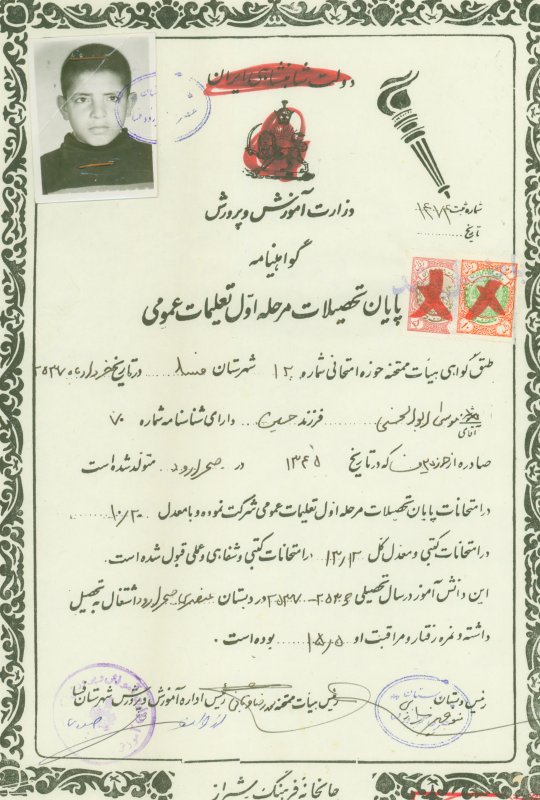 دولت شاهنشاهی ایران
وزارت آموزش و پرورش
شماره ثبت ۱۴۷۴
تاریخ
گواهینامه
پایان تحصیلات مرحله اول تعلیمات عمومی
طبق گواهی هیأت ممتحنه حوزه امتحانی شماره ۱۲ شهرستان فسا در تاریخ خرداد ماه ۲۵۳۷
آقای موسی ابوالحسنی فرزند حسین دارای شناسنامه شماره ۷۰
صادره از که در تاریخ ۱۳۴۵ در صحرارود متولد شده است
در امتحانات پایان تحصیلات مرحله اول تعلیمات عمومی شرکت نموده و با معدل ۱۰/۲۰
در امتحانات کتبی و معدل کل ۱۳/۱۲ در امتحانات کتبی و شفاهی و عملی قبول شده است.
این دانش آموز در سال تحصیلی ۲۵۳۶-۲۵۳۷ در دبستان عنصری صحرارود اشتغال به تحصیل
داشته و نمره رفتار و مراقبت او ۱۵/۵ بوده است.
رئیس دبستان رئیس هیأت ممتحنه رئیس اداره آموزش و پرورش شهرستان فسا
چاپخانه فرهنگ شیراز